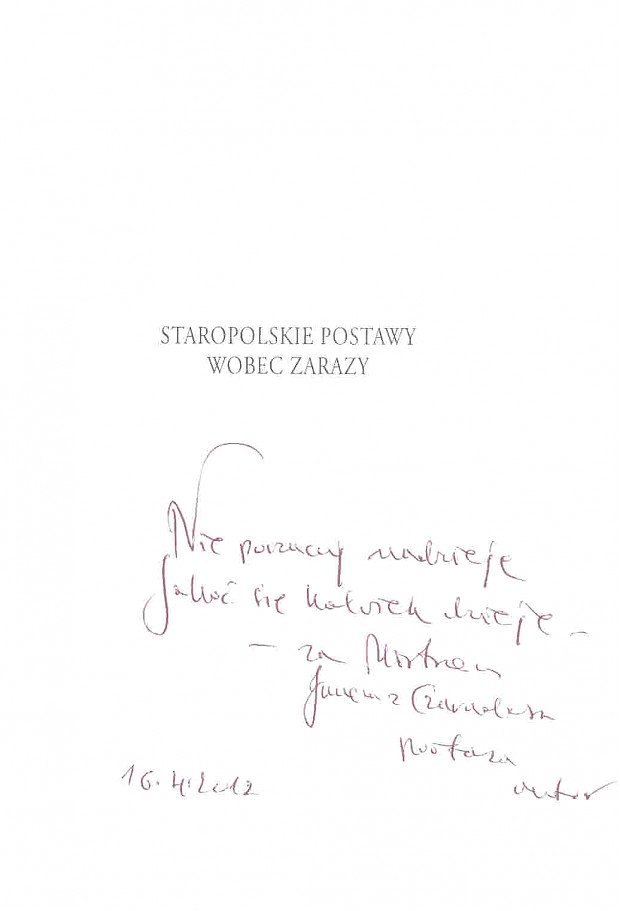 STAROPOLSKIE POSTAWY
WOBEC ZARAZY
Nie porzucaj nadzieje
Jakoć się kolwiek dzieje –
– za Mistrzem
Janem z Czarnolasu
powtarza
autor
16.4.2012